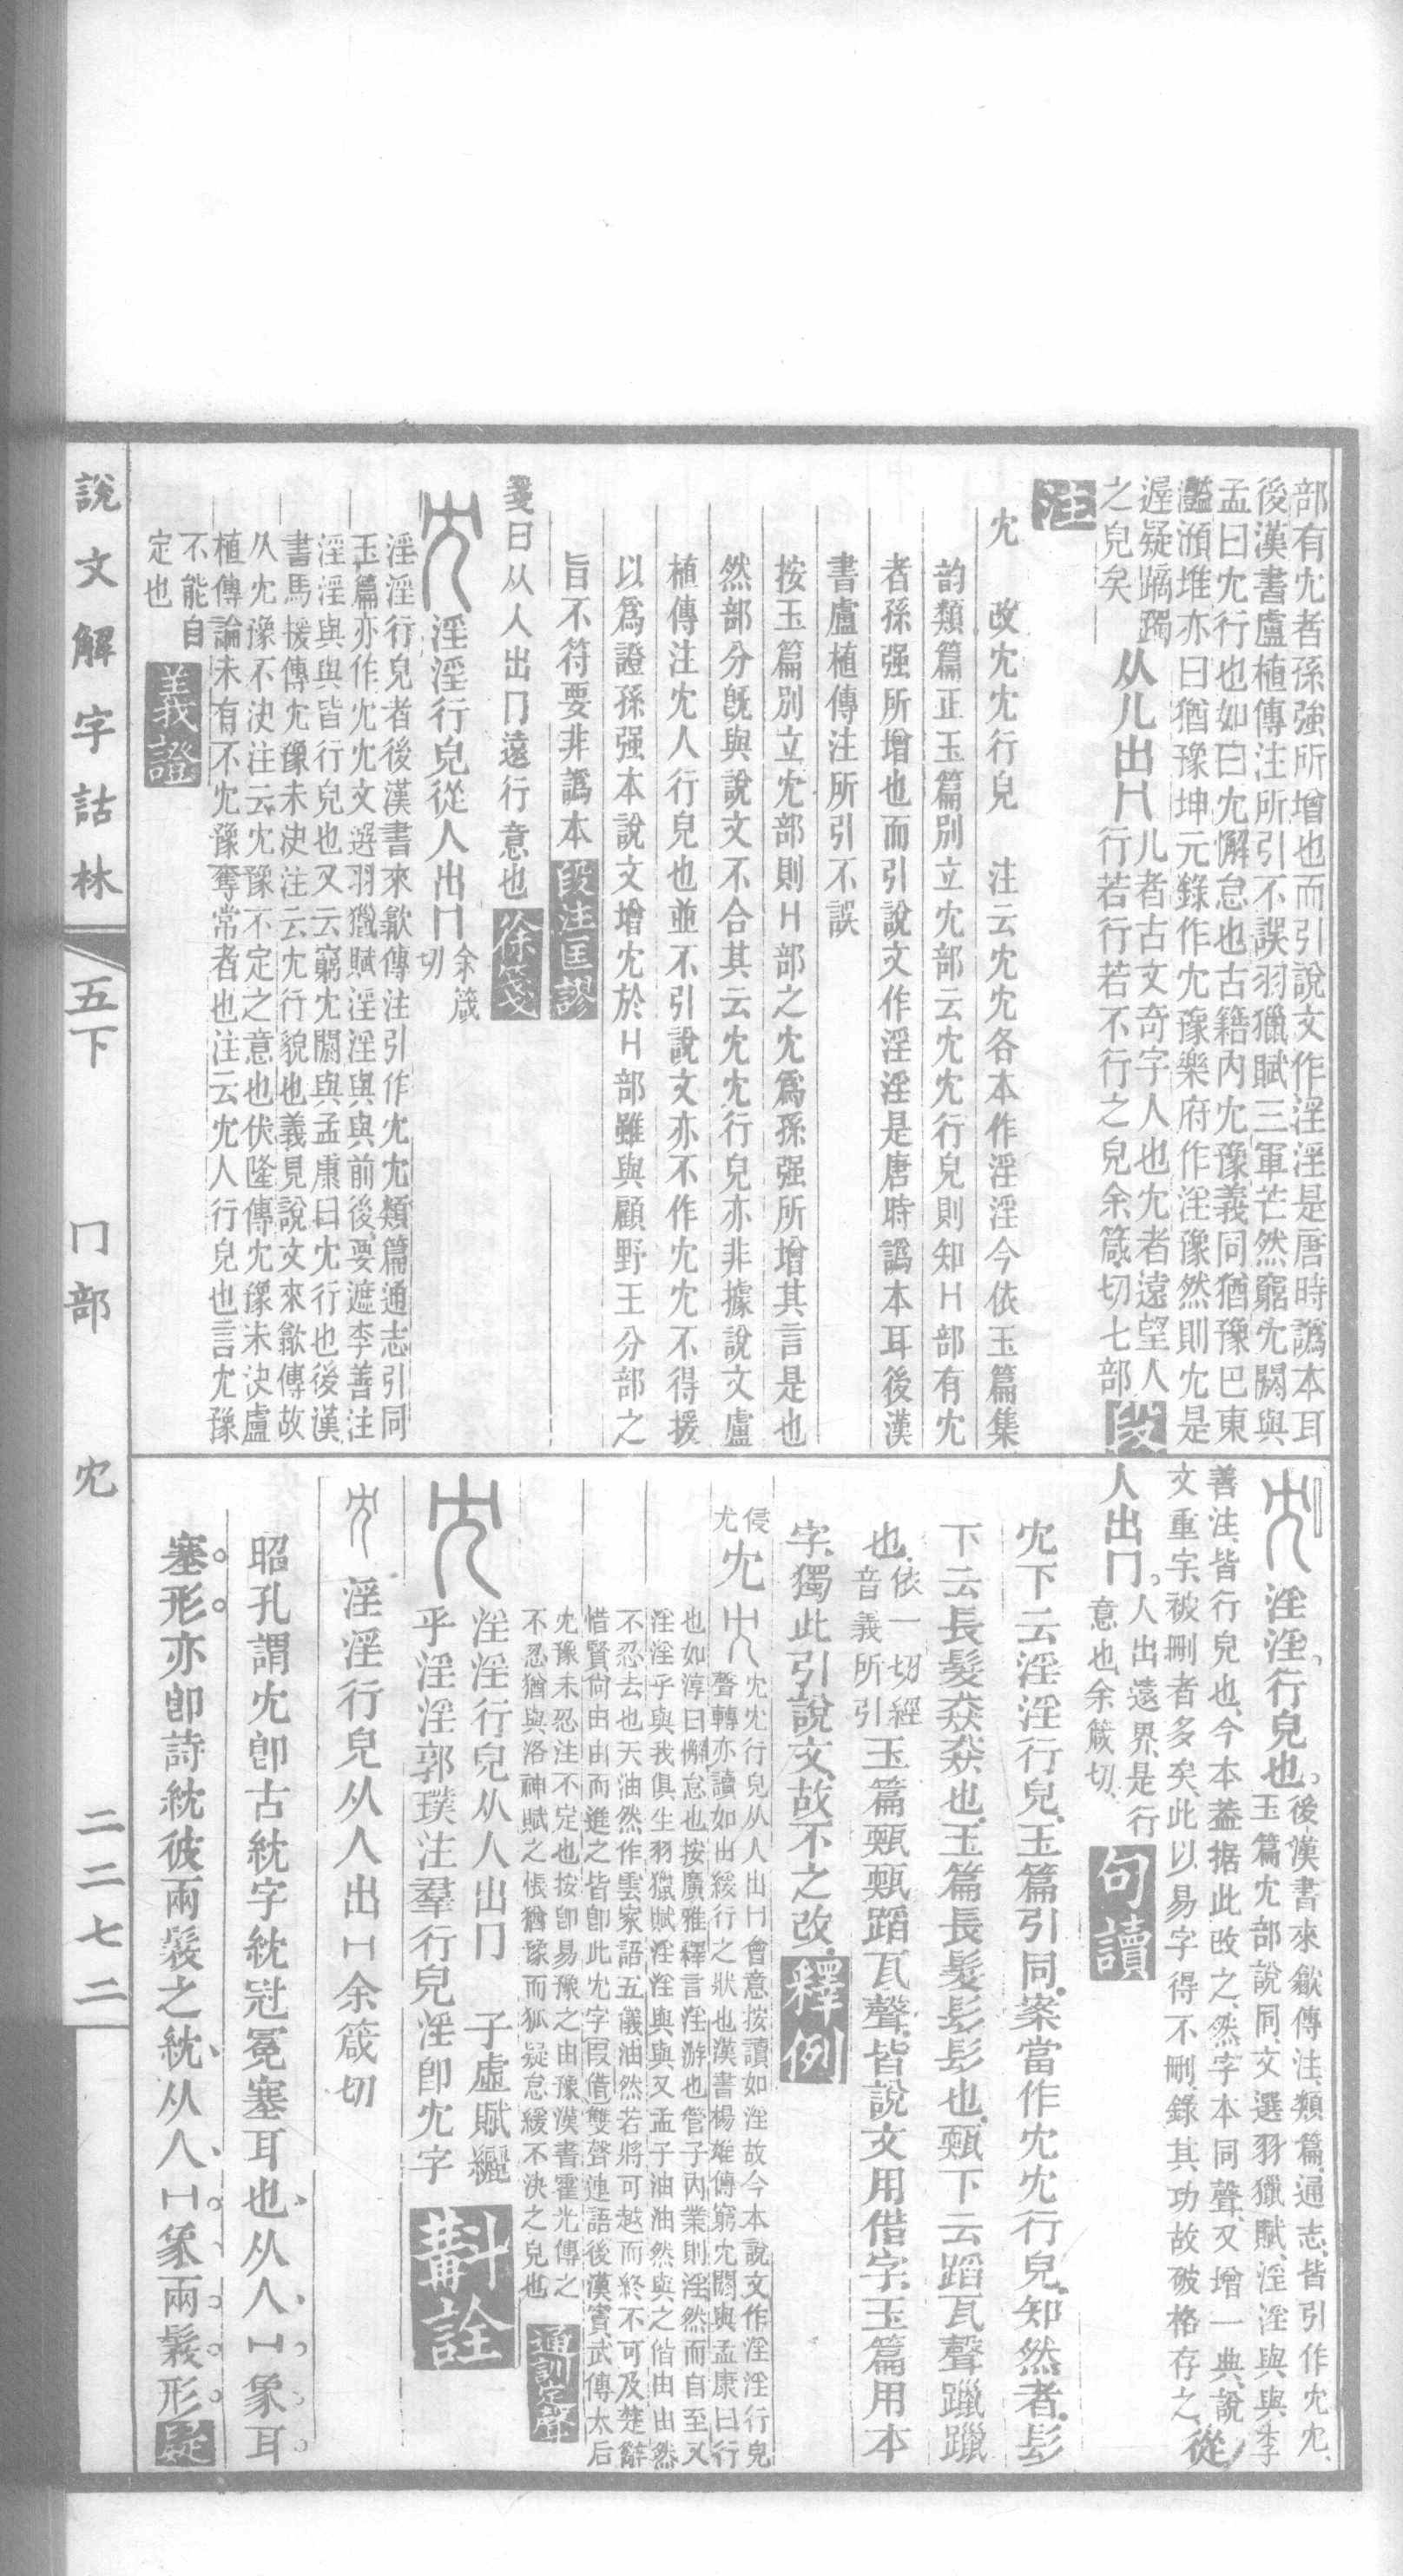 部有冘者孫強所增也而引說文作淫淫是唐時譌本耳
後漢書盧植傳注所引不誤羽獵賦三軍芒然窮冘閼與
孟曰冘行也如曰冘懈怠也古籍內冘豫義同猶豫巴東
灩澦堆亦曰猶豫坤元錄作冘豫樂府作淫豫然則冘是
遟疑蹢躅
之皃矣
从儿出冂
儿者古文奇字人也冘者遠望人
行若行若不行之皃余箴切七部
段
注
冘 改冘冘行皃 注云冘冘各本作淫淫今依玉篇集
韵類篇正玉篇別立冘部云冘冘行皃則知冂部有冘
者孫强所增也而引說文作淫淫是唐時譌本耳後漢
書盧植傳注所引不誤
按玉篇別立冘部則冂部之冘爲孫强所增其言是也
然部分旣與說文不合其云冘冘行皃亦非據說文盧
植傳注冘人行皃也並不引說文亦不作冘冘不得援
以爲證孫强本說文增冘於冂部雖與顧野王分部之
旨不符要非譌本
段注匡謬
曰从人出冂遠行意也
徐箋
淫淫行皃從人出冂
余箴
切
淫淫行皃者後漢書來歙傳注引作冘冘類篇通志引同
玉篇亦作冘冘文選羽獵賦淫淫與與前後要遮李善注
淫淫與與皆行皃也又云窮冘閼與孟康曰冘行也後漢
書馬援傳冘豫未決注云冘行貌也義見說文來歙傳故
从冘豫不決注云冘豫不定之意也伏隆傳冘豫未決盧
植傳論未有不冘豫奪常者也注云冘人行皃也言冘豫
不能自
定也
義證
淫淫行皃也
後漢書來歙傳注類篇通志皆引作冘冘
玉篇冘部說同文選羽獵賦淫淫與與李
善注皆行皃也今本蓋据此改之然字本同聲又增一典說
文重字被刪者多矣此以易字得不刪錄其功故破格存之
從
人出冂
人出遠界是行
意也余箴切
句讀
冘下云淫淫行皃玉篇引同案當作冘冘行皃知然者髟
下云長髮猋猋也玉篇長髮髟髟也甄下云蹈瓦聲躐躐
也
依一切經
音義所引
玉篇甄甄蹈瓦聲皆說文用借字玉篇用本
字獨此引說文故不之改
釋例
侵
尤
冘
冘冘行皃从人出冂會意按讀如淫故今本說文作淫淫行皃
聲轉亦讀如由綏行之狀也漢書楊雄傳窮冘閼與孟康曰行
也如淳曰懈怠也按廣雅釋言淫游也管子內業則淫然而自至又
淫淫乎與我俱生羽獵賦淫淫與與又孟子油油然與之偕由由然
不忍去也天油然作雲家語五儀油然若將可越而終不可及楚辭
惜賢尙由由而進之皆卽此冘字叚借雙聲連語後漢竇武傳太后
冘豫未忍注不定也按卽易豫之由豫漢書霍光傳之
不忍猶與洛神賦之悵猶豫而狐疑怠緩不決之皃也
通訓定聲
淫淫行皃从人出冂 子虛賦纚
乎淫淫郭璞注羣行皃淫卽冘字
斠詮
淫淫行皃从人出冂余箴切
昭孔謂冘卽古紞字紞冠冕塞耳也从人冂象耳
塞形亦卽詩紞彼兩髦之紞从人冂象兩髦形
疑
說文解字詁林
五下
冂部
冘
二二七二